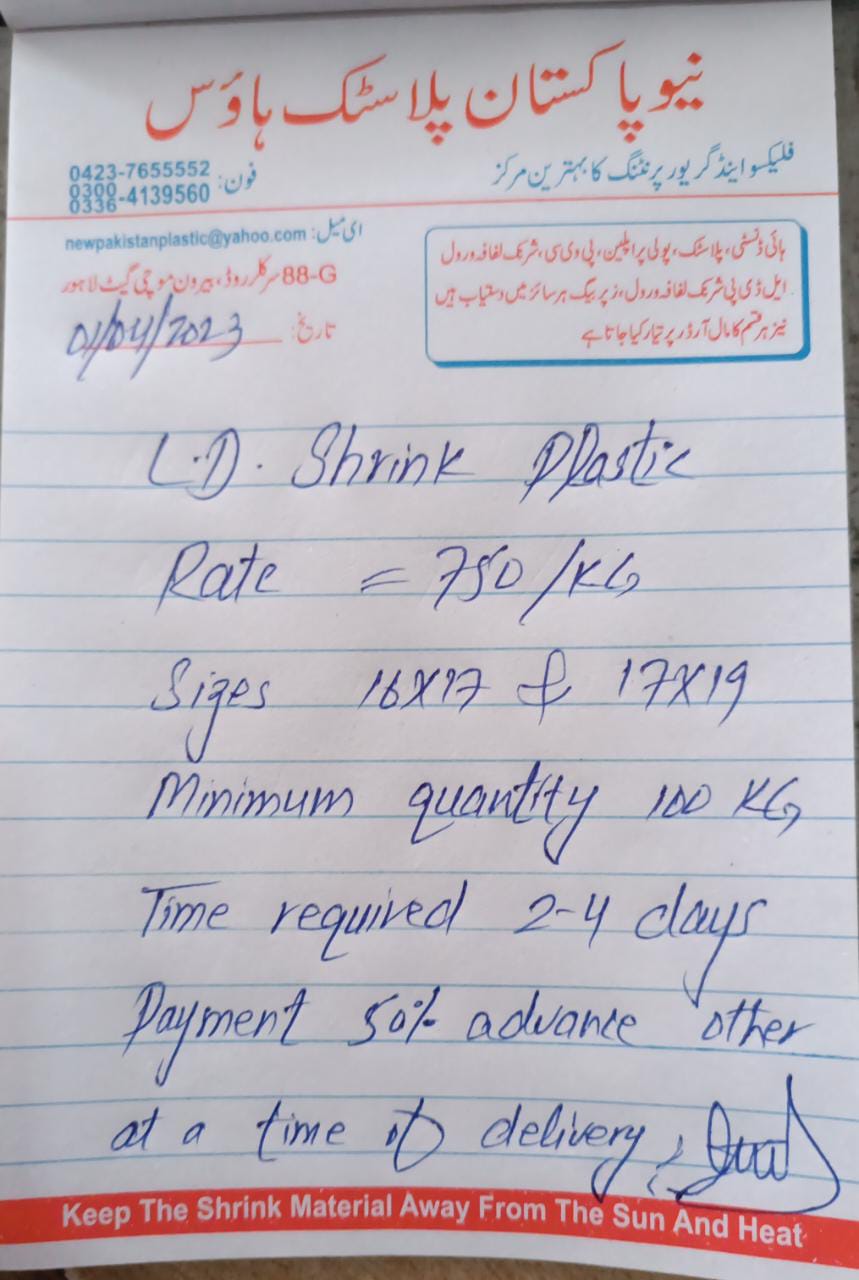 نیو پاکستان پلاسٹک ہاؤس
فلیکسو اینڈ گریور پرنٹنگ کا بہترین مرکز
فون: 0423-7655552
0300
0336-4139560
ای میل: newpakistanplastic@yahoo.com
88-G سرکلر روڈ، بیرون موچی گیٹ لاہور
تاریخ: 01/04/2023
ہائی ڈنسٹی، پلاسٹک، پولی پراپلین، پی وی سی، شرنک لفافہ ورول
ایل ڈی پی شرنک لفافہ ورول، زپر بیگ ہر سائز میں دستیاب ہیں
نیز ہر قسم کا مال آرڈر پر تیار کیا جاتا ہے
L.D. Shrink Plastic
Rate = 750/KG
Sizes 16X17 & 17X19
Minimum quantity 100 KG
Time required 2-4 days
Payment 50% advance other
at a time of delivery
Keep The Shrink Material Away From The Sun And Heat